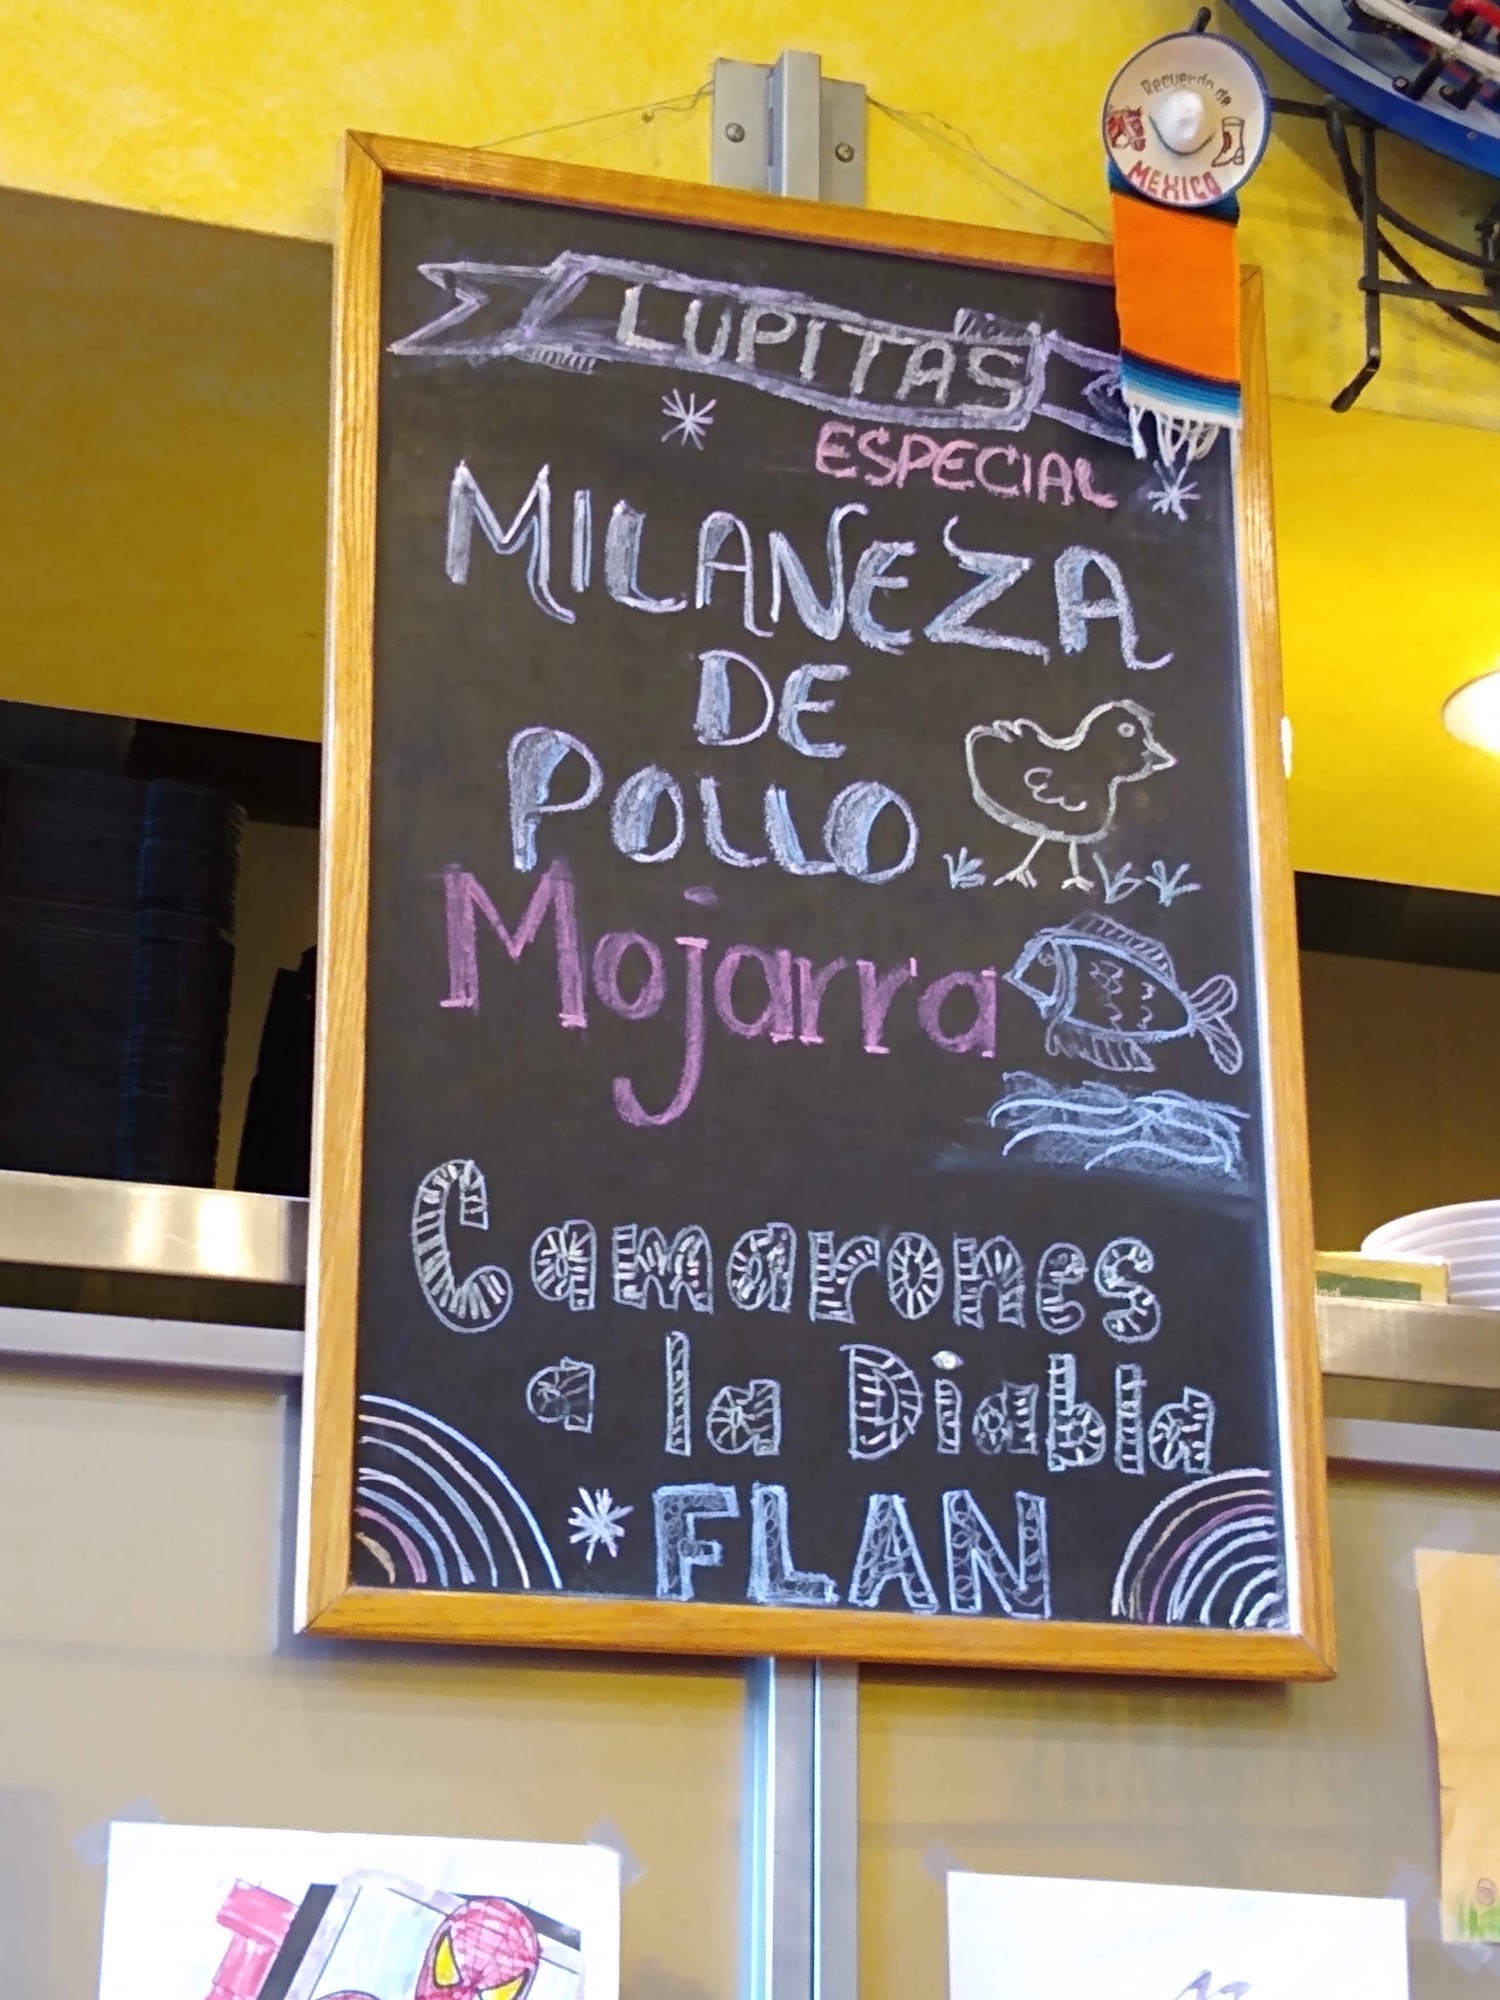 Recuerdo de
MEXICO
LUPITAS
ESPECIAL
MILANEZA
DE
POLLO
Mojarra
Camarones
a la Diabla
FLAN